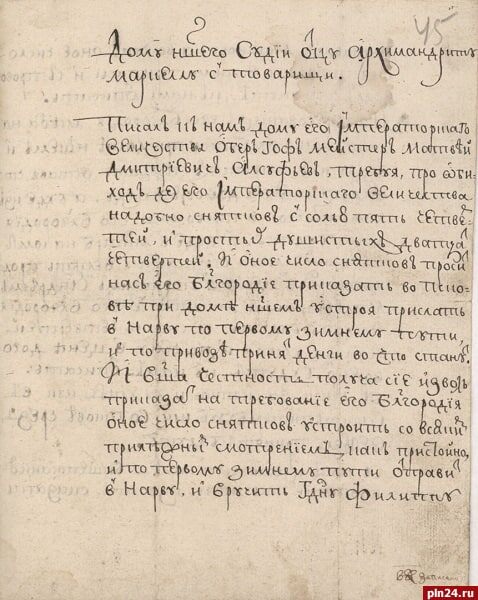 45
Дому нш̃его Судїи ѻц҃у Архимандриту
Маркелу с товарищи.
Писалъ к намъ дому его Імператорскаго
Величества Оберъ Гофъ Мейстеръ Матвей
Дмитрїевичъ Алсуфьевъ, требуя, про обы-
ходъ де его Імператорскаго Величества
надобно снятковъ с солью пять четве-
тей, и простых душистыхъ дватцат
четвертей. И оное число снятковъ проси
насъ его Благородїе приказать во Пско-
вѣ при домѣ нш̃емъ устроя прислать
в Нарву по первому зимнему пути,
и по привозѣ приня денги во что стану.
И Вша честность получа сїе изволь
приказа на требованїе его Благородїя
оное число снятковъ устроить со всяки
прилѣжны смотренїемъ, какъ пристойно,
и по первому зимнему пути отправи
в Нарву, и вручить Ідну Филиппу
pln24.ru